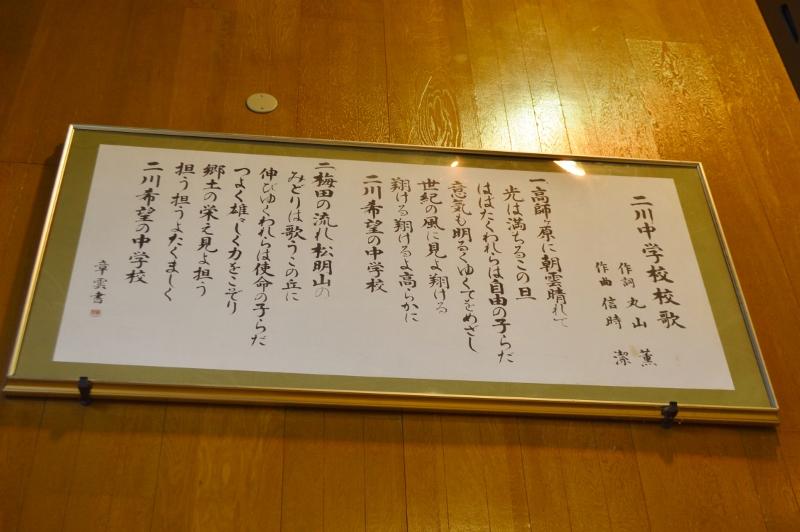 二川中学校校歌
作詞 丸山 薫
作曲 信時 潔
一 高師ヶ原に朝雲晴れて
光は満ちるこの旦
はばたくわれらは自由の子らだ
意気も明るくゆくてをめざし
世紀の風に見よ翔ける
翔ける翔けるよ高らかに
二川希望の中学校
二 梅田の流れ松明山の
みどりは歌うこの丘に
伸びゆくわれらは使命の子らだ
つよく雄々しく力をこぞり
郷土の栄え見よ担う
担う担うよたくましく
二川希望の中学校
章雲書